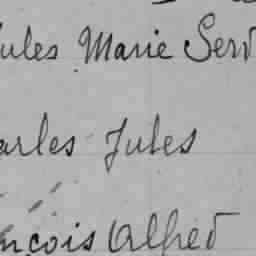 ules Marie Serv
arles Jules
ncois Alfred